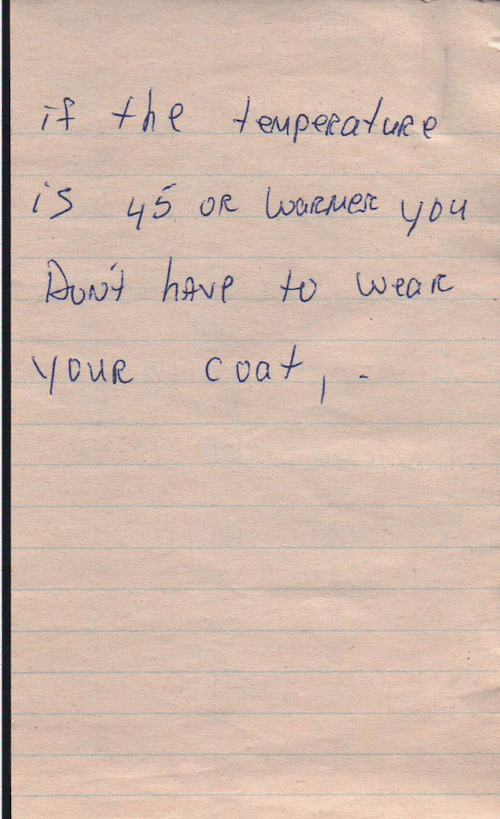 if the temperature
is 45 or warmer you
Don't have to wear
your coat, -